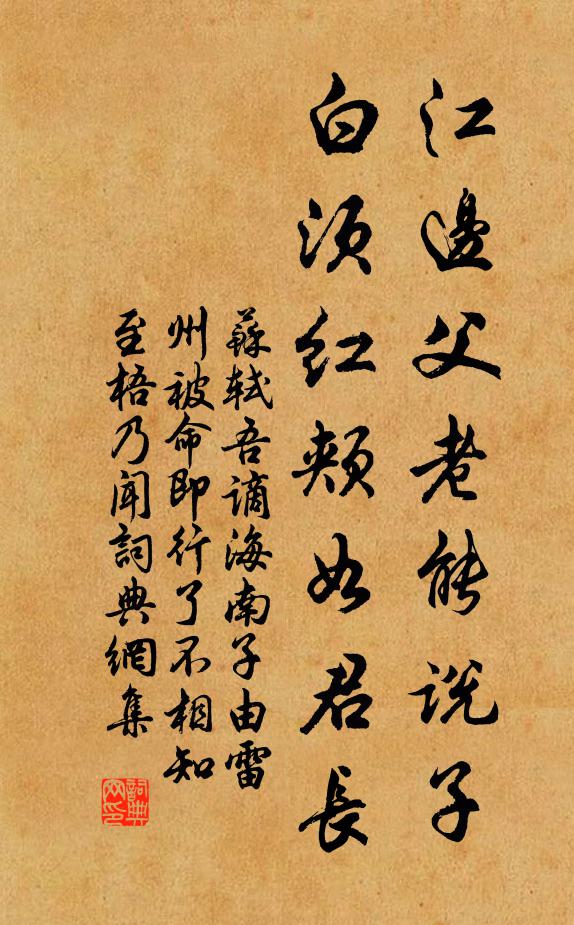 江邊父老能說子
白須紅頰如君長
蘇軾吾謫海南子由雷
州被命即行了不相知
至梧乃聞詞典網集
詞典網印